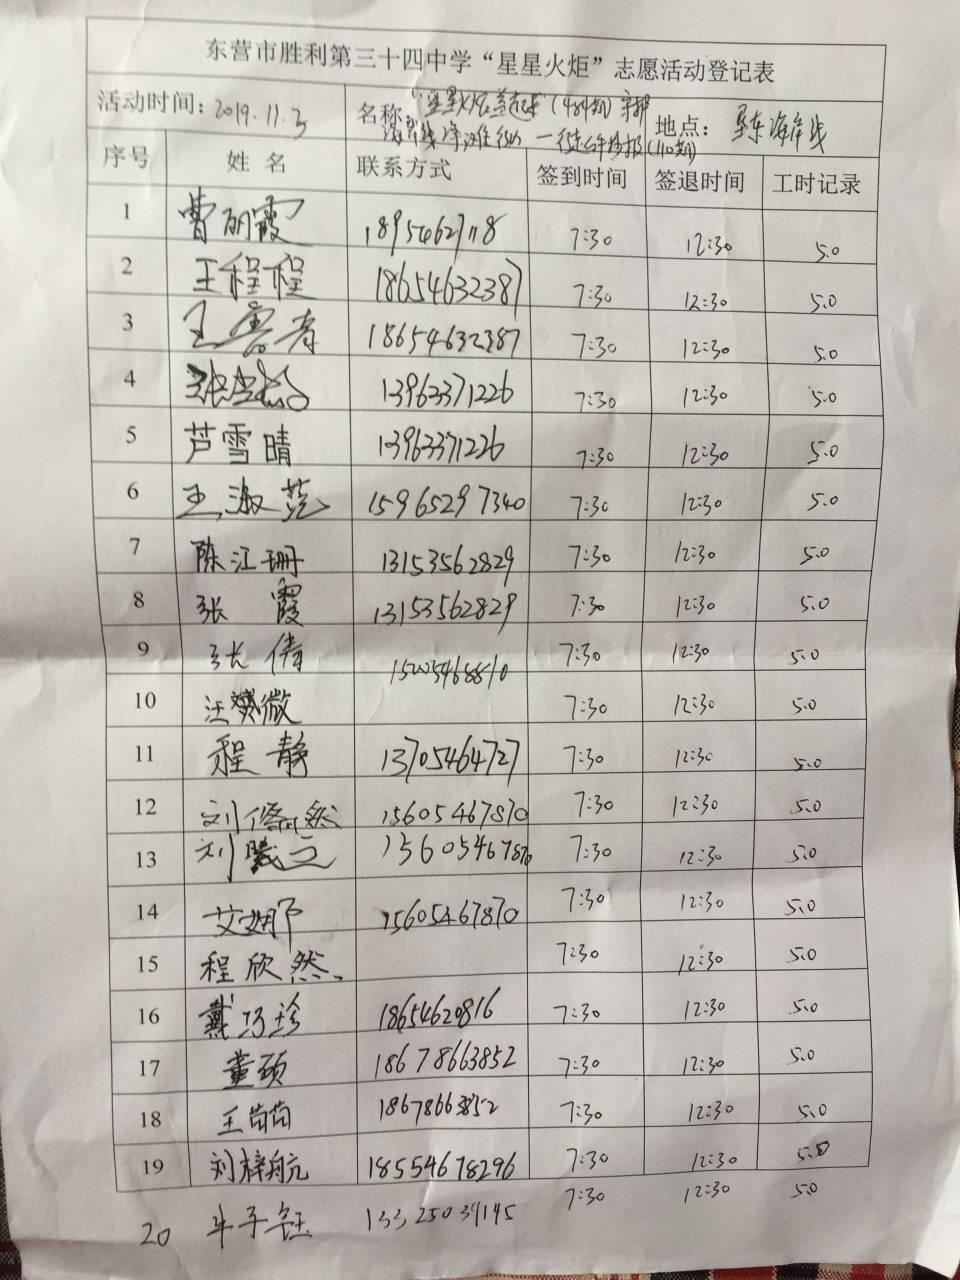 东营市胜利第三十四中学“星星火炬”志愿活动登记表
活动时间：2019.11.3 名称： 地点：海岸线
序号 姓名 联系方式 签到时间 签退时间 工时记录
1 曹丽霞 18954627118 7:30 12:30 5.0
2 王程程 18654632387 7:30 12:30 5.0
3 王 18654632387 7:30 12:30 5.0
4 张 13963371226 7:30 12:30 5.0
5 芦雪晴 13963371226 7:30 12:30 5.0
6 王淑苑 15965297340 7:30 12:30 5.0
7 陈江珊 13153562829 7:30 12:30 5.0
8 张霞 13153562829 7:30 12:30 5.0
9 张倩 15005468810 7:30 12:30 5.0
10 汪赟微 7:30 12:30 5.0
11 程静 13705464727 7:30 12:30 5.0
12 刘修然 15605467870 7:30 12:30 5.0
13 刘曦之 15605467870 7:30 12:30 5.0
14 艾娜 15605467870 7:30 12:30 5.0
15 程欣然 7:30 12:30 5.0
16 戴巧珍 18654620816 7:30 12:30 5.0
17 董硕 18678663852 7:30 12:30 5.0
18 王苗苗 18678663852 7:30 12:30 5.0
19 刘梓航 18554678296 7:30 12:30 5.0
20 牛子钰 13325039145 7:30 12:30 5.0